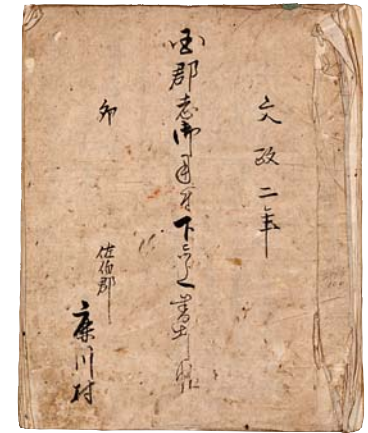 文政二年
国郡志御用付下しらへ書出帳
卯
佐伯郡
鹿川村